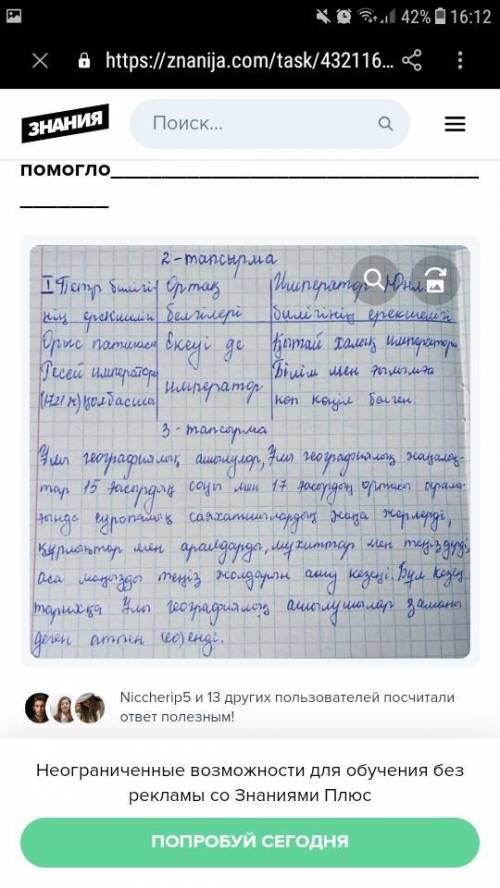 42% 16:12
https://znanija.com/task/432116...
ЗНАНИЯ
Поиск...
помогло
2-тапсырма
I Петр билігі-
нің ерекшелігі
Ортақ
белгілері
Император
билігінің ерекшелігі
Орыс патшасы
Ресей императоры
(1721 ж) қолбасшы
Екеуі де
император
Қытай халық императоры
Білім мен ғылымға
көп көңіл бөлген.
3-тапсырма
Ұлы географиялық ашылулар, Ұлы географиялық жаңалық-
тар 15 ғасырдың соңы мен 17 ғасырдың ортасы арала-
ғында еуропалық саяхатшылардың жаңа жерлерді,
құрлықтар мен аралдарды, мұхиттар мен теңіздерді,
аса маңызды теңіз жолдарын ашу кезеңі. Бұл кезең
тарихқа Ұлы географиялық ашылушылар заманы
деген атпен енді.
Niccherip5 и 13 других пользователей посчитали
ответ полезным!
Неограниченные возможности для обучения без
рекламы со Знаниями Плюс
ПОПРОБУЙ СЕГОДНЯ